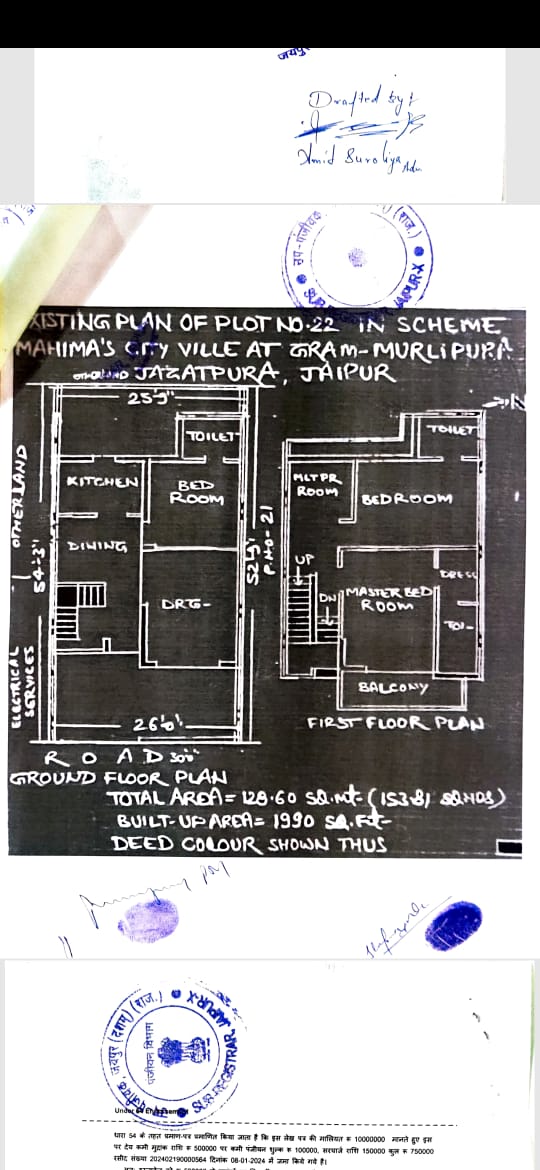 जयपुर
Drafted by:
Amid Suroliya Adv
उप-पंजीयक
(राज.)
SUB-REGISTRAR JAIPUR-X
EXISTING PLAN OF PLOT NO.22 IN SCHEME
MAHIMA'S CITY VILLE AT GRAM-MURLIPURA
OTHER LAND JAGATPURA, JAIPUR
25'9"
TOILET
KITCHEN
BED
ROOM
DINING
DRG-
OTHER LAND
54'-3"
ELECTRICAL
SERVICES
52'9"
P.NO-21
26'0"
ROAD 30'0"
GROUND FLOOR PLAN
TOILET
MLTPR
ROOM
BEDROOM
UP
DN
DRESS
MASTER BED
ROOM
TOI-
BALCONY
FIRST FLOOR PLAN
TOTAL AREA = 128.60 SQ.Mt- (153.81 SQ.YDS)
BUILT-UP AREA = 1990 SQ.Ft-
DEED COLOUR SHOWN THUS
उप पंजीयक, जयपुर (दशम्) (राज.)
SUB-REGISTRAR JAIPUR-X
पंजीयन विभाग
Under 54 Endorsement
धारा 54 के तहत प्रमाण-पत्र प्रमाणित किया जाता है कि इस लेख पत्र की मालियत रू 10000000 मानते हुए इस
पर देय कमी मुद्रांक राशि रू 500000 पर कमी पंजीयन शुल्क रू 100000, सरचार्ज राशि 150000 कुल रू 750000
रसीद संख्या 202402190000564 दिनांक 08-01-2024 में जमा किये गये है।